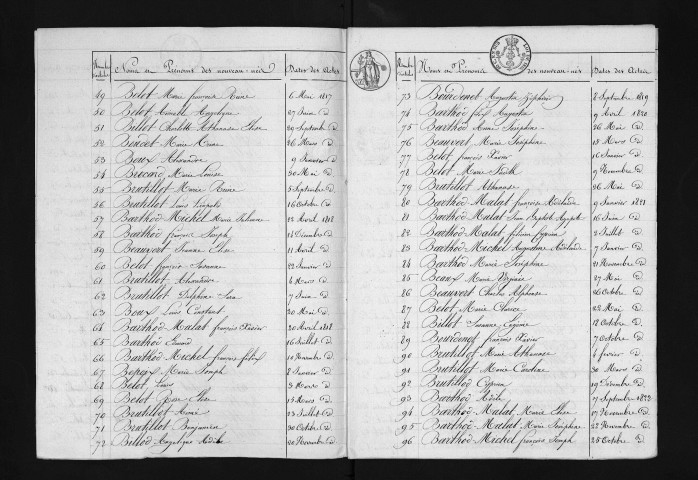 Noms et Prénoms des nouveau-nés Dates des Actes
49 Belot Marie françoise 6 Mai 1817
50 Belot Angélique 27 Juin d
51 Billot Charlotte Athanase Elise 29 Septembre d
52 Boucet Marie 26 Mars d
53 Boux Alexandre 9 Janvier d
54 Marie Louise 30 Mai d
55 Brutillot Marie 5 Septembre d
56 Brutillot Louis 16 Octobre d
57 Barthod Michel Marie 22 Avril 1818
58 Barthod françois Joseph 14 Décembre d
59 Beauvert Jeanne Elise 11 Avril d
60 Belot françoise Suzanne 22 Janvier d
61 Brutillot Alexandrine 6 Mars d
62 Brutillot Delphine 7 Juin d
63 Boux Louis Constant 20 Mai d
64 Barthod Malat françois Xavier 20 Avril 1818
65 Barthod 16 Juillet d
66 Barthod Michel françois félix 10 Novembre d
67 Marie Joseph 8 Janvier d
68 Belot Louis 3 Mars d
69 Belot Elise 13 Mars d
70 Brutillot 23 Juillet d
71 Brutillot Benjamin 30 Octobre d
72 Billod Angélique Adèle 20 Novembre d
Noms et Prénoms des nouveau-nés Dates des Actes
73 Bourdenet Augustin Zéphirin 8 Septembre 1819
74 Barthod félix Augustin 9 Avril 1820
75 Barthod Marie Joséphine 26 Mai d
76 Beauvert Marie Joséphine 18 Mars d
77 Belot françois Xavier 16 Janvier d
78 Belot Marie Judith 9 Novembre d
79 Brutillot Athanase 26 Mai d
80 Barthod Malat françoise Adélaïde 9 Janvier 1821
81 Barthod Malat Jean Baptiste 16 Juin d
82 Barthod Malat 2 Juillet d
83 Barthod Michel Augustine Adélaïde 7 Janvier d
84 Barthod Marie Joséphine 21 Novembre d
85 Beaux Marie Virginie 27 Mai d
86 Beauvert Charles Alphonse 26 Octobre d
87 Belot Marie Clarice 22 Mai d
88 Billot Jeanne 12 Octobre d
89 Bourdenet françois Xavier 7 Octobre d
90 Brutillot Marie Athanase 4 février d
91 Brutillot Marie Caroline 30 Mars d
92 Brutillod Cyprien 19 Décembre d
93 Barthod Adèle 7 Septembre 1822
94 Barthod Malat Marie Elise 17 Novembre d
95 Barthod Malat Marie Joséphine 22 Novembre d
96 Barthod Michel françois Joseph 25 Octobre d